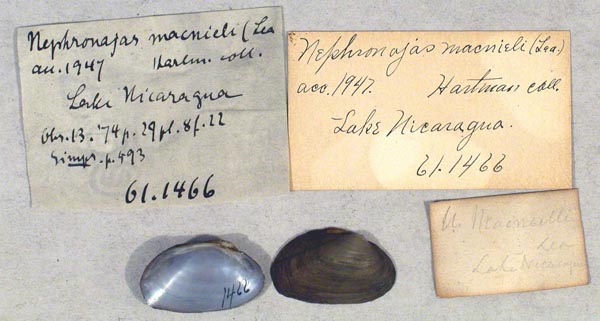 Nephronajas macnieli (Lea
acc. 1947 Hartm. coll.
Lake Nicaragua
Obs. 13. '74 p. 29 pl. 8 f. 22
Simps. p. 493
61.1466
Nephronajas macnieli (Lea)
acc. 1947. Hartman coll.
Lake Nicaragua.
61.1466
U. Macneilli
Lea
Lake Nicaragua
1466